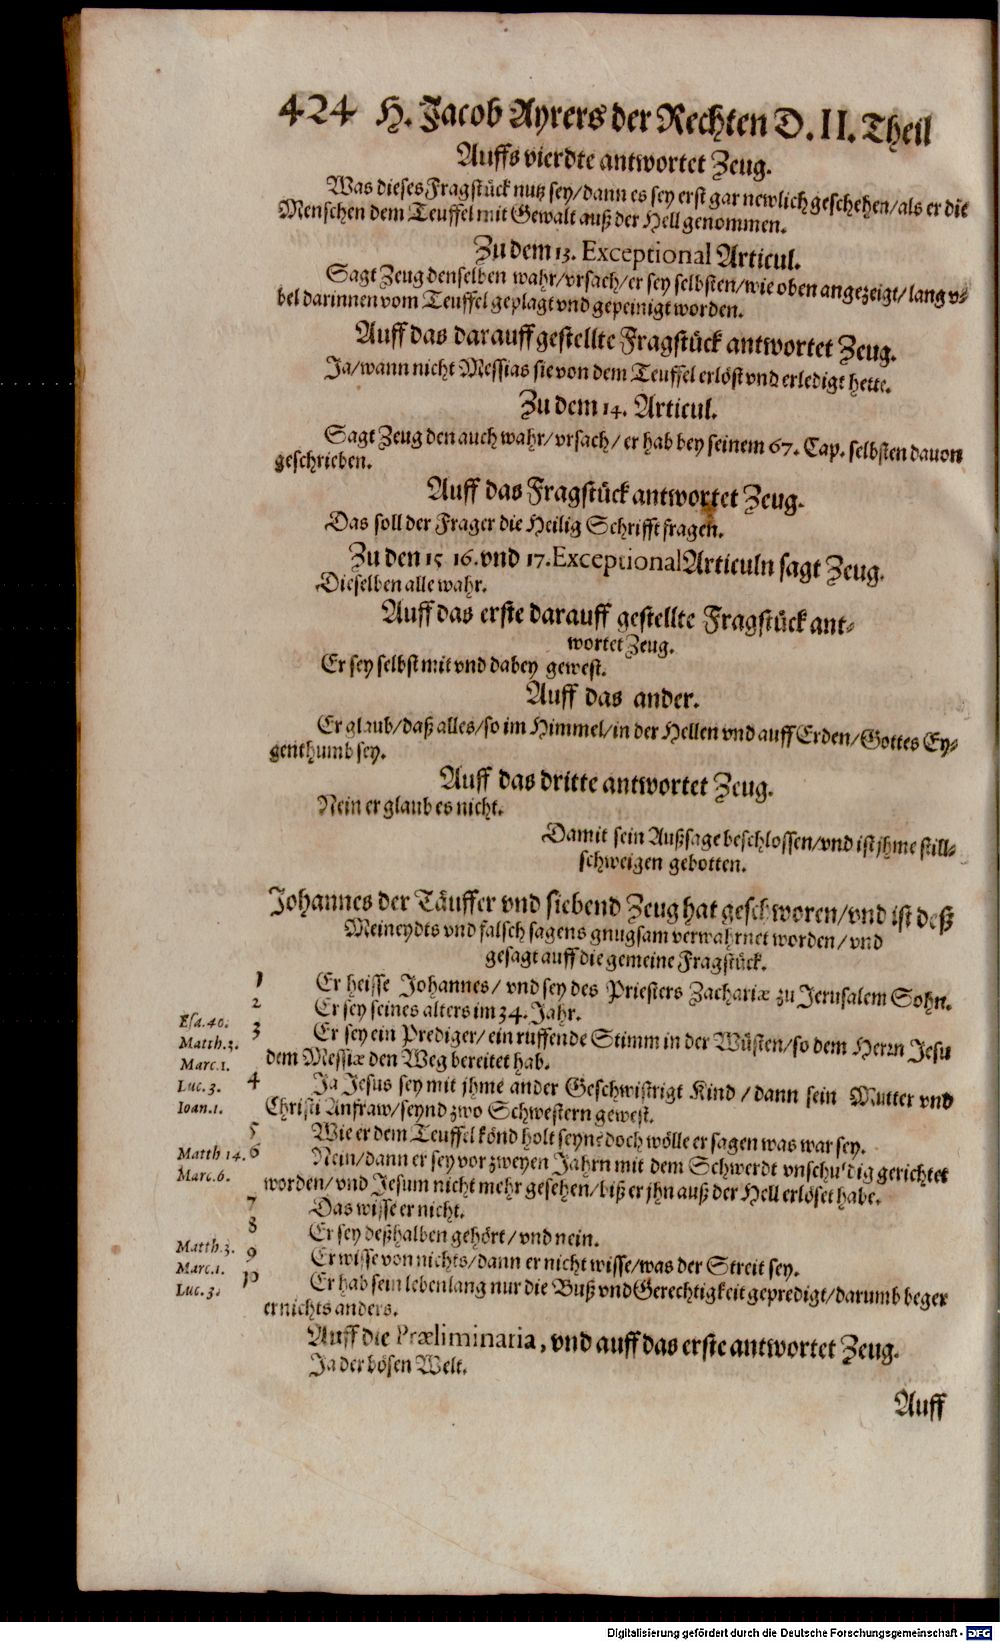 424 H. Jacob Ayrers der Rechten D. II. Theil
Auffs vierdte antwortet Zeug.
Was dieses Fragstück nutz sey/dann es sey erst gar newlich geschehen/als er die
Menschen dem Teuffel mit Gewalt auß der Hell genommen.
Zu dem 13. Exceptional Articul.
Sagt Zeug denselben wahr/vrsach/er sey selbsten/wie oben angezeigt/lang v-
bel darinnen vom Teuffel geplagt vnd gepeinigt worden.
Auff das darauff gestellte Fragstück antwortet Zeug.
Ja/wann nicht Messias sie von dem Teuffel erlöst vnd erledigt hette.
Zu dem 14. Articul.
Sagt Zeug den auch wahr/vrsach/er hab bey seinem 67. Cap. selbsten dauon
geschrieben.
Auff das Fragstück antwortet Zeug.
Das soll der Frager die Heilig Schrifft fragen.
Zu den 15 16. vnd 17. Exceptional Articuln sagt Zeug.
Dieselben alle wahr.
Auff das erste darauff gestellte Fragstück ant-
wortet Zeug.
Er sey selbst mit vnd dabey gewest.
Auff das ander.
Er glaub/daß alles/so im Himmel/in der Hellen vnd auff Erden/Gottes Ey-
genthumb sey.
Auff das dritte antwortet Zeug.
Nein er glaub es nicht.
Damit sein Außsage beschlossen/vnd ist jhme still-
schweigen gebotten.
Johannes der Täuffer vnd siebend Zeug hat geschworen/vnd ist deß
Meineydts vnd falsch sagens gnugsam verwahrnet worden/vnd
gesagt auff die gemeine Fragstück.
1 Er heisse Johannes/vnd sey des Priesters Zachariæ zu Jerusalem Sohn.
2 Er sey seines alters im 34. Jahr.
Esa. 40. 3 Er sey ein Prediger/ein ruffende Stimm in der Wüsten/so dem Herrn Jesu
Matth. 3.
dem Messiæ den Weg bereitet hab.
Marc. 1.
Luc. 3. 4 Ja Jesus sey mit jhme ander Geschwistrigt Kind/dann sein Mutter vnd
Ioan. 1. Christi Anfraw/seynd zwo Schwestern gewest.
5 Wie er dem Teuffel könd holt seyn? doch wölle er sagen was war sey.
Matth 14. 6 Nein/dann er sey vor zweyen Jahrn mit dem Schwerdt vnschuldig gerichtet
Marc. 6. worden/vnd Jesum nicht mehr gesehen/biß er jhn auß der Hell erlöset habe.
7 Das wisse er nicht.
8 Er sey deßhalben gehört/vnd nein.
Matth. 3. 9 Er wisse von nichts/dann er nicht wisse/was der Streit sey.
Marc. 1.
Luc. 3. Er hab sein lebenlang nur die Buß vnd Gerechtigkeit gepredigt/darumb beger
er nichts anders.
Auff die Præliminaria, vnd auff das erste antwortet Zeug.
Ja der bösen Welt.
Auff
Digitalisierung gefördert durch die Deutsche Forschungsgemeinschaft - DFG